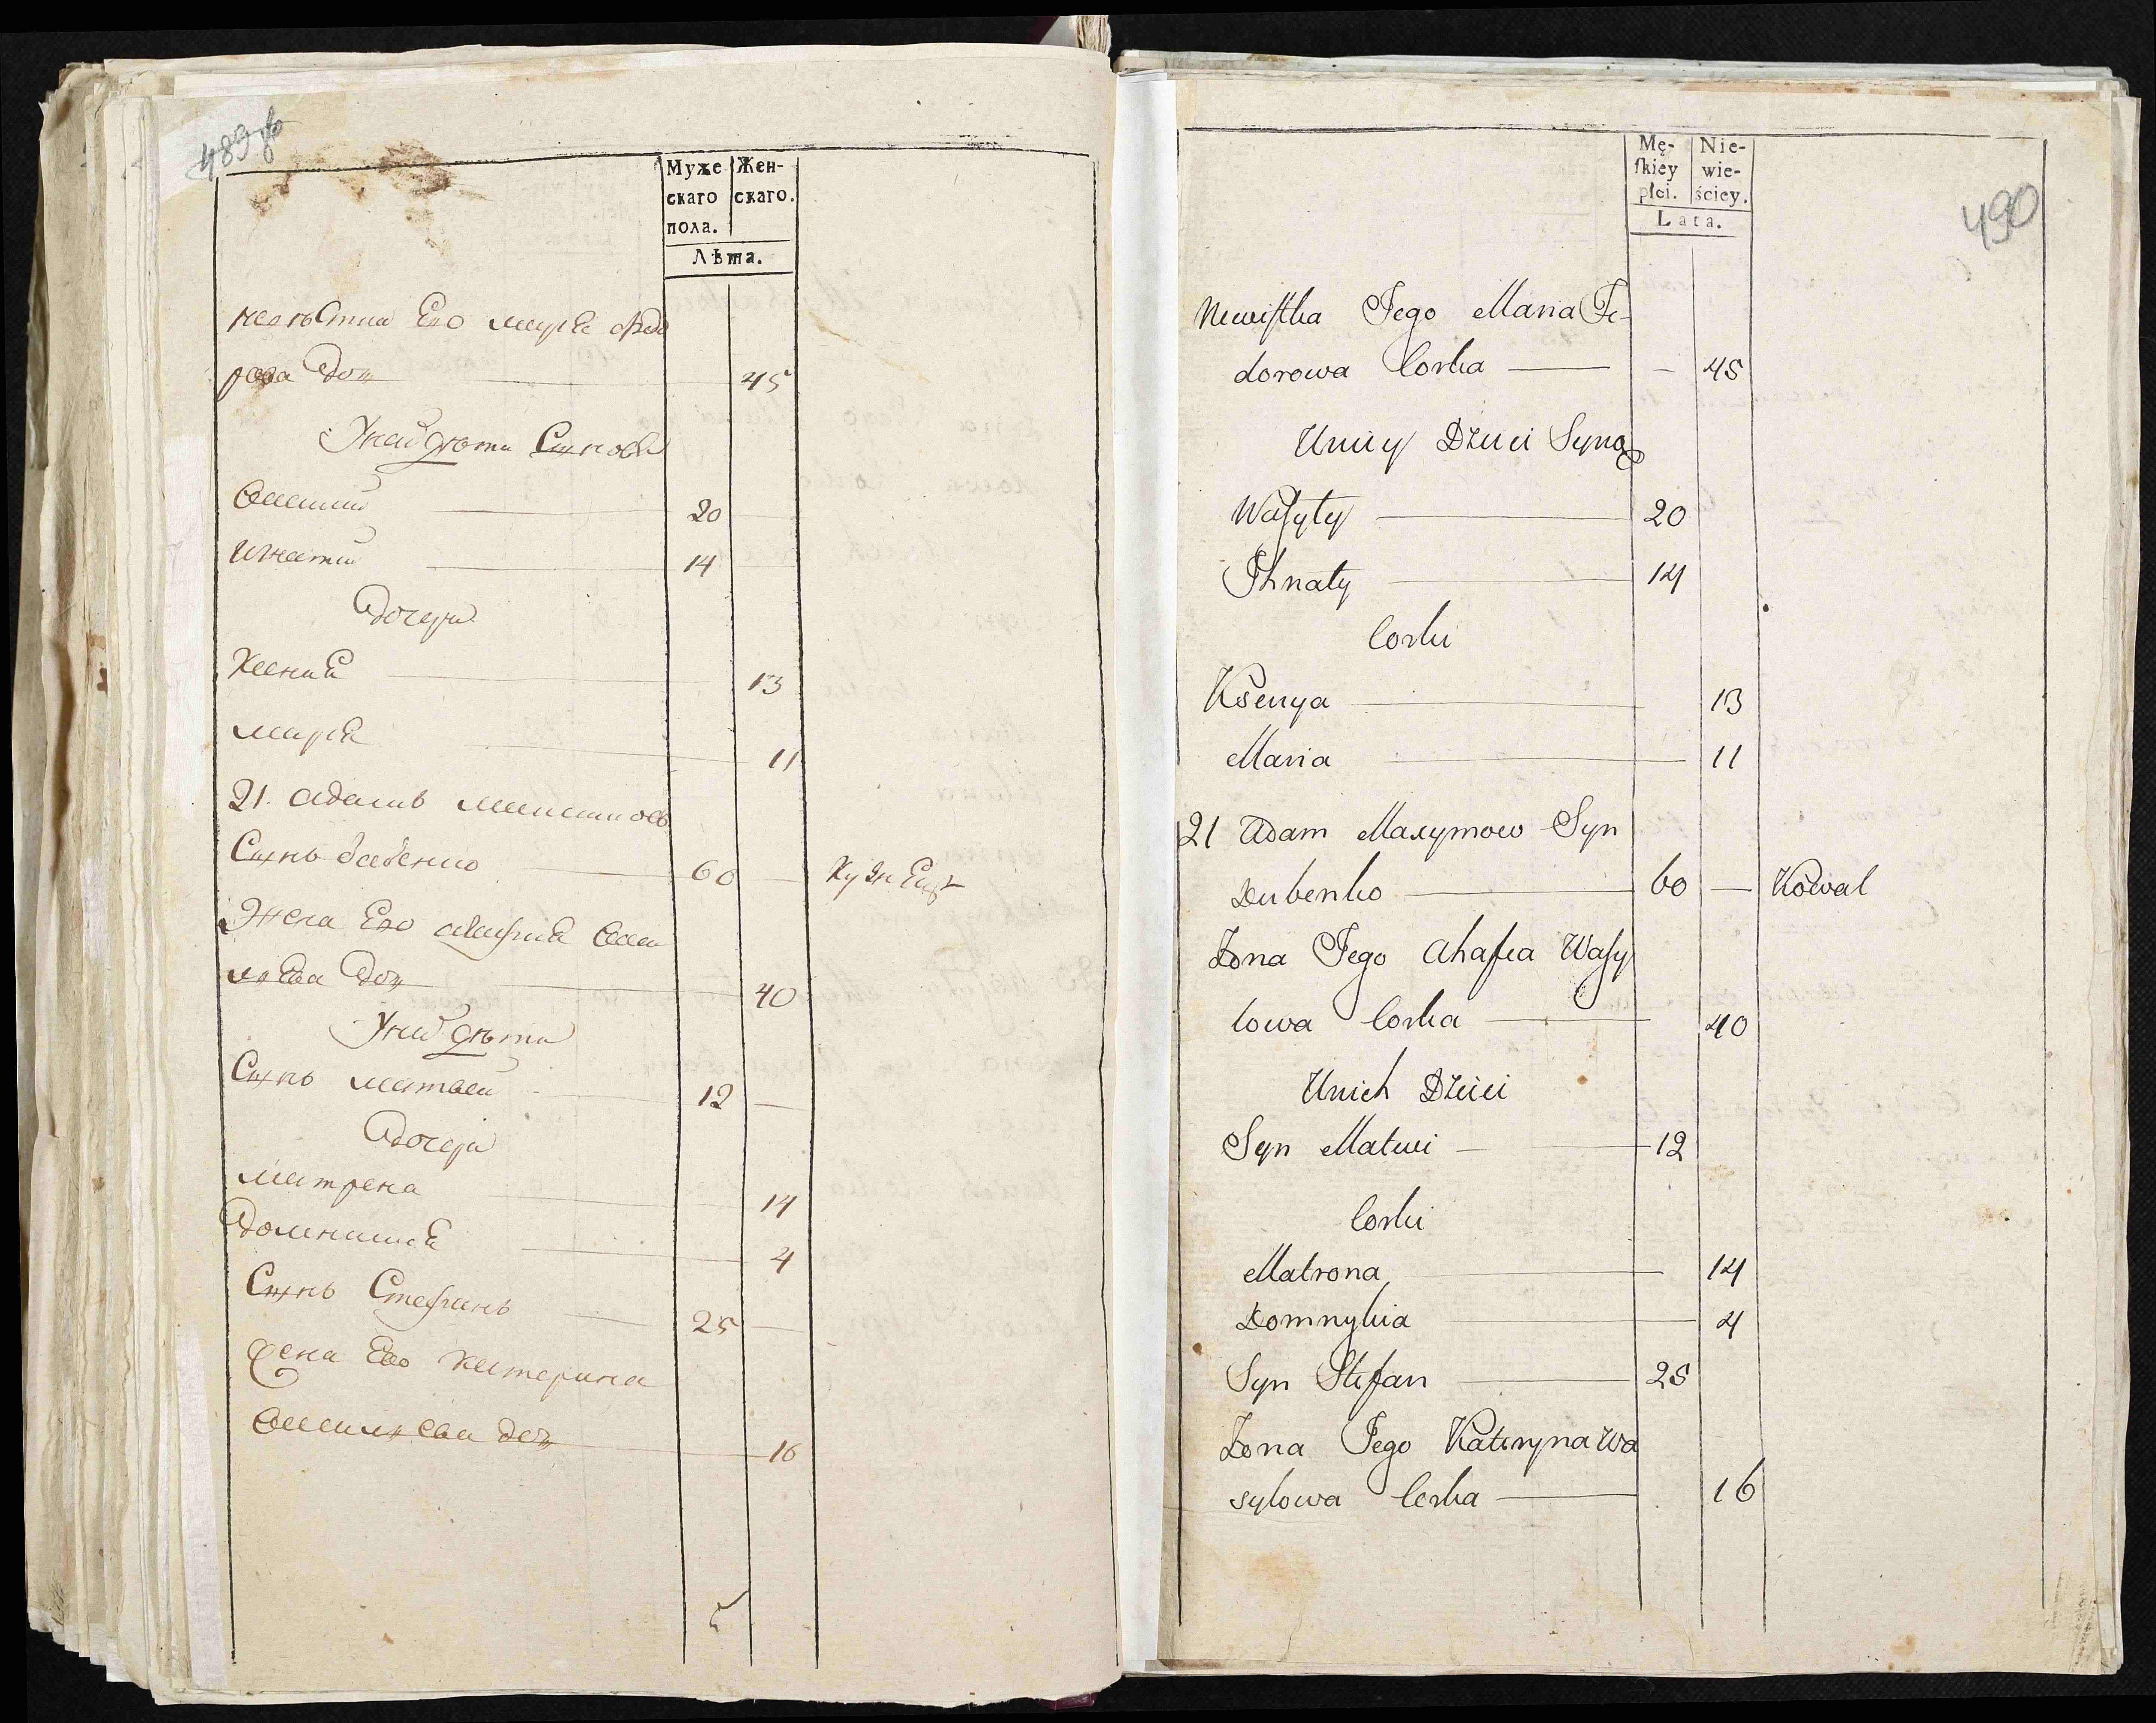 489 об
Муже Жен-
скаго скаго.
пола.
Лѣта.
невѣстка Его марія Федо
рова дочь 45
У неи дѣти Сыновя
Василий 20
Игнатий 14
Дочери
Ксения 13
марія 11
21. адамъ максимовъ
Сынъ дубенко 60 — Кузнецъ
Жена Его агафия васи
лѣва дочь 40
У них дѣти
Сынъ матвей 12 —
Дочери
матрена 14
Домникия 4
Сынъ Стефанъ 25 —
жена Его катерина
василѣва дочь 16
5
490
Mę- Nie-
ſkiey wie-
płci. ściey.
Lata.
Newiſtka Jego Maria Fe-
dorowa Corka — 45
Uniey Dzieci Syny
Waſyly 20
Ihnaty 14
Corki
Ksenya 13
Maria 11
21 Adam Maxymow Syn
Dubenko 60 — Kowal
Zona Jego Ahafia Waſy
lowa Corka 40
Unich Dzieci
Syn Matwi 12
Corki
Matrona 14
Domnykia 4
Syn Stefan 25
Zona Jego Kateryna Wa
sylowa Corka 16